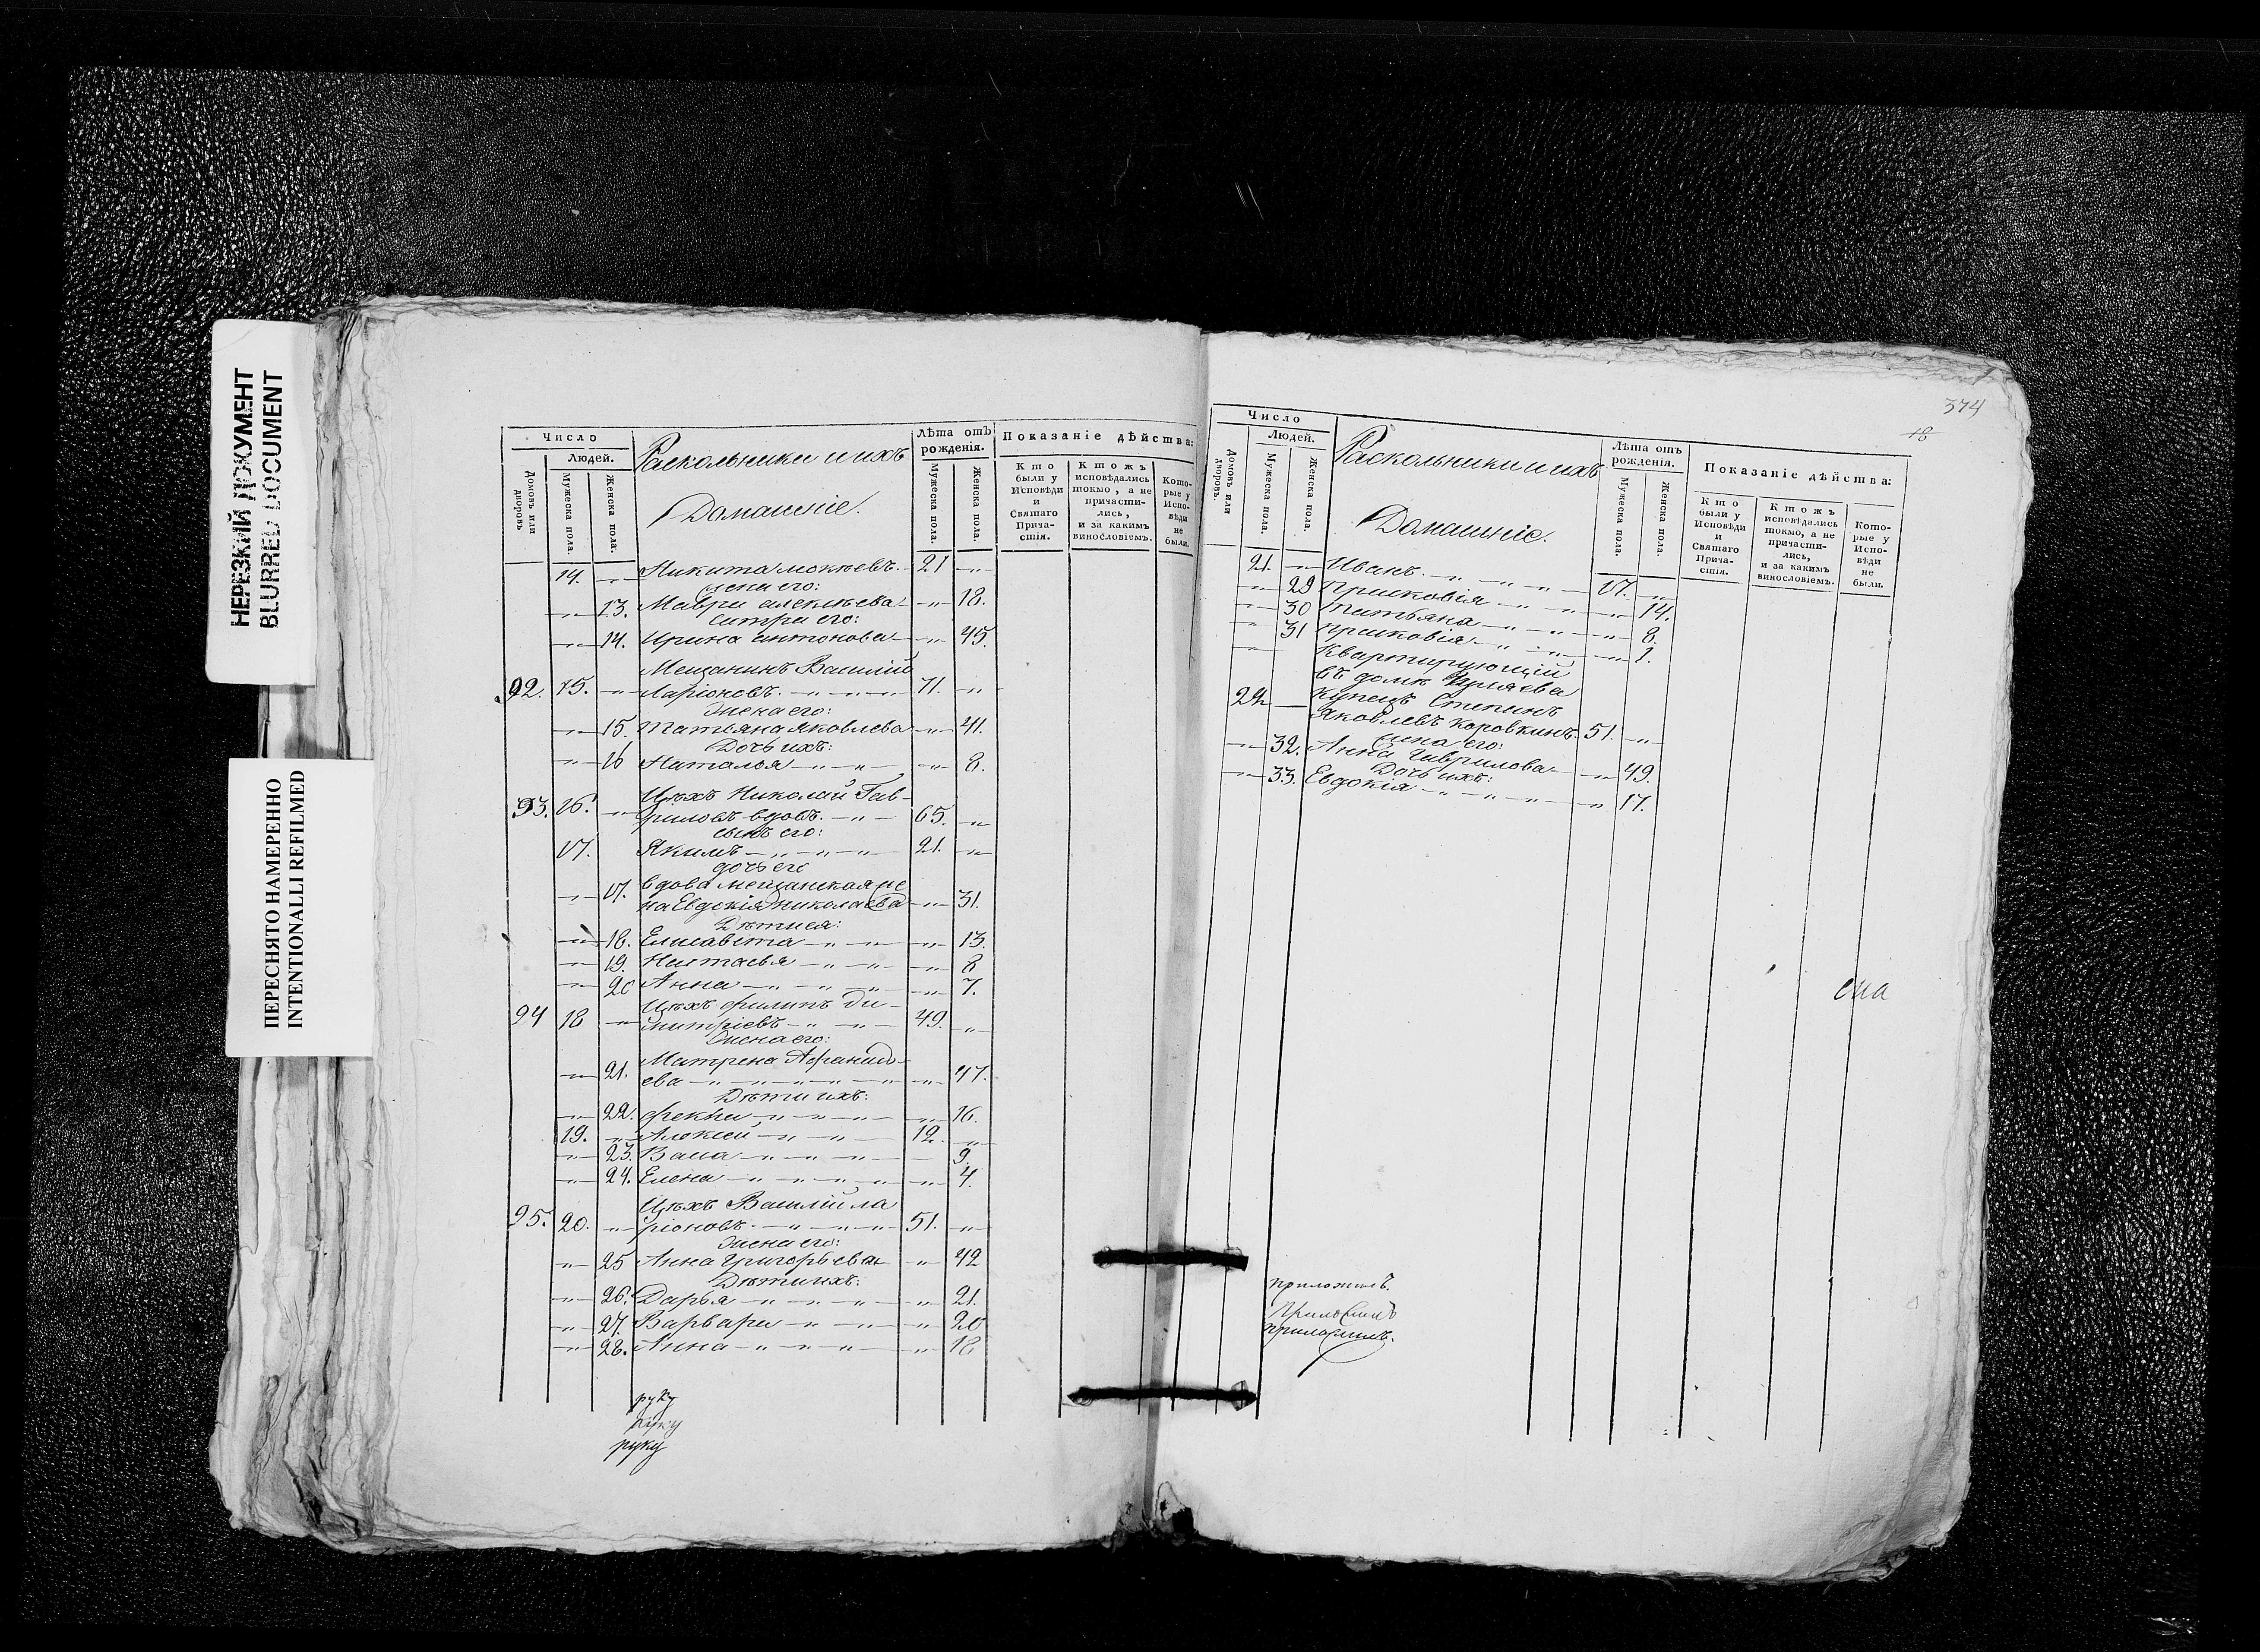 НЕРЕЗКИЙ ДОКУМЕНТ
BLURRED DOCUMENT
ПЕРЕСНЯТО НАМЕРЕННО
INTENTIONALLI REFILMED
Число
Людей.
Домовъ или дворовъ
Мужеска пола.
Женска пола.
Раскольники и ихъ
Домашніе.
Лѣта отъ рожденія.
Мужеска пола.
Женска пола.
Показаніе дѣйства:
Кто были у Исповѣди и Святаго Причастія.
Ктожъ исповѣдались токмо, а не причастились, и за какимъ винословіемъ.
Которые у Исповѣди не были.
14. Никита Мокѣевъ. 21
Жена его:
13. Мавра Алексѣева 18.
Сестра его:
14. Ирина Антонова 45.
Мещанинъ Василій
92. 15. Ларіоновъ. 71.
Жена его:
15. Татьяна Яковлева 41.
Дочь ихъ:
16 Наталья 8.
Цѣхъ Николай Гав-
93. 16. риловъ вдовъ. 65.
сынъ его:
17. Якимъ 21.
дочь его
вдова мещанская же
17. на Евдокія Николаева 31.
Дѣти ея:
18. Елисавета 13.
19. Настасья 8
20 Анна 7.
Цѣхъ Филипъ Ди-
94 18 митріевъ 49.
Жена его:
Матрена Афанась-
21. ева 47.
Дѣти ихъ:
22. Фекла 16.
19. Алексей 12.
23. Васа 9.
24. Елена 4.
Цѣхъ Василій Ла
95. 20. ріоновъ. 51.
Жена его:
25 Анна Григорьева 42
Дѣти ихъ:
26. Дарья 21.
27. Варвара 20
28. Анна 18
руку
руку
руку
374
18
Число
Людей.
Домовъ или дворовъ.
Мужеска пола.
Женска пола.
Раскольники и ихъ
Домашніе.
Лѣта отъ рожденія.
Мужеска пола.
Женска пола.
Показаніе дѣйства:
Кто были у Исповѣди и Святаго Причастія.
Ктожъ исповѣдались токмо, а не причастились, и за какимъ винословіемъ.
Которые у Исповѣди не были.
21. Иванъ 17.
29 Прасковія 14.
30 Татьяна 8.
31 Прасковія 1.
Квартирующій
въ домѣ
22 Купецъ Степанъ
Яковлевъ Коровкинъ. 51.
жена его:
32. Анна Гаврилова 49.
Дочь ихъ:
33. Евдокія 17.
приложилъ.
Приложилъ
приложилъ.